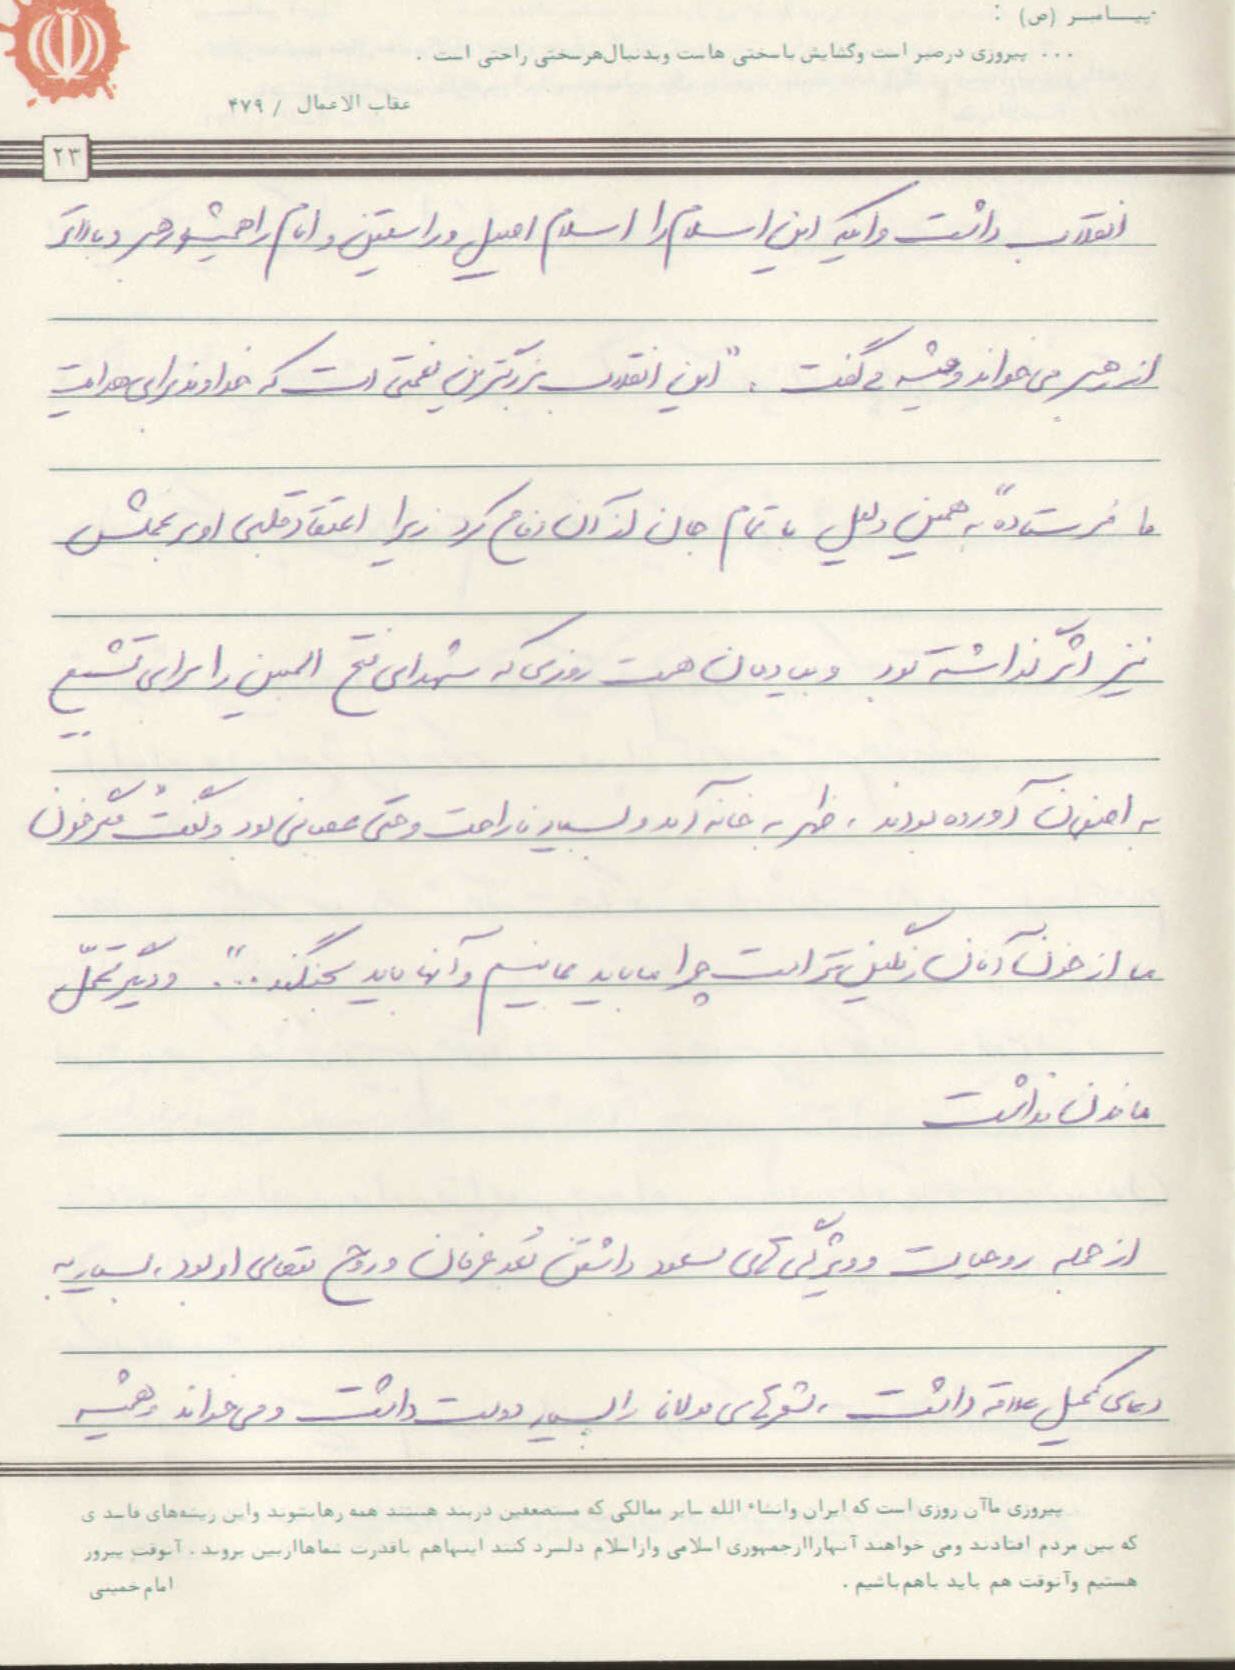 پیـــامبــر (ص) :
... پیروزی درصبر است وگشایش باسختی هاست وبدنبال هرسختی راحتی است .
عقاب الاعمال / ۴۷۹
۲۳
انقلاب داشت واینکه این اسلام را اسلام اصیل و راستین و امام را همیشه رهبر و بالاتر
از رهبر می خواند و همیشه می گفت ، "این انقلاب بزرگترین نعمتی است که خداوند برای هدایت
ما فرستاده" به همین دلیل با تمام جان از آن دفاع کرد زیرا اعتقاد قلبی او بر عملش
نیز اثر گذاشته بود و بیادمان هست روزی که شهدای فتح المبین را برای تشییع
به اصفهان آورده بودند ، ظهر به خانه آمد و بسیار ناراحت و حتی عصبانی بود و گفت مگر خون
ما از خون آنان رنگین تر است چرا ما باید بمانیم و آنها باید بجنگند ...". و دیگر تحمّل
ماندن نداشت
از جمله روحیات و ویژگی های مسعود داشتن بُعد عرفان و روح متعالی او بود ، بسیار به
دعای کمیل علاقه داشت ، شعرهای مولانا را بسیار دوست داشت و می خواند و همیشه
پیروزی ماآن روزی است که ایران وانشاء الله سایر ممالکی که مستضعفین دربند هستند همه رهابشوند واین ریشه‌های فاسد ی
که بین مردم افتادند ومی خواهند آنهاراازجمهوری اسلامی وازاسلام دلسرد کنند اینهاهم باقدرت شماهاازبین بروند . آنوقت پیروز
هستیم وآنوقت هم باید باهم باشیم .
امام خمینی